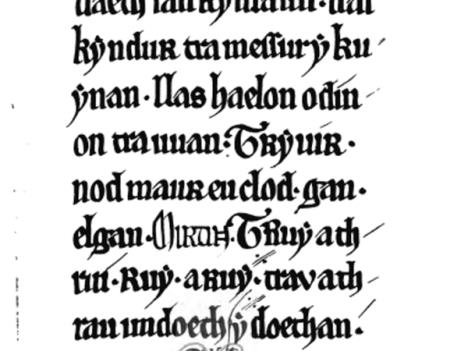 kyndur tra messur y ku
ynan. llas haelon o din
on tra uuan: Tryuir.
nod maur eu clod. gan.
elgan. Truy a th
rui. Ruy. a ruy. trav ath
rau imdoeth y doethan.